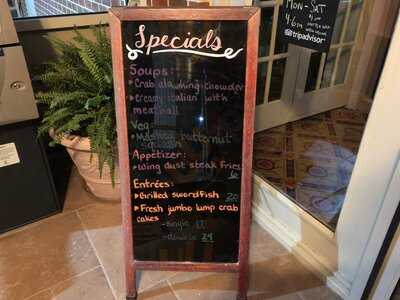 Specials
Soups:
Crab alaking chowder
Creamy italian with
meatball
Veg:
Mashed butternut
squash
Appetizer:
Wing dust steak fries
6
Entrées:
Grilled swordfish 20
Fresh jumbo lump crab
cakes
-single 17
-double 24
MON-SAT
4-6pm
@tripadvisor